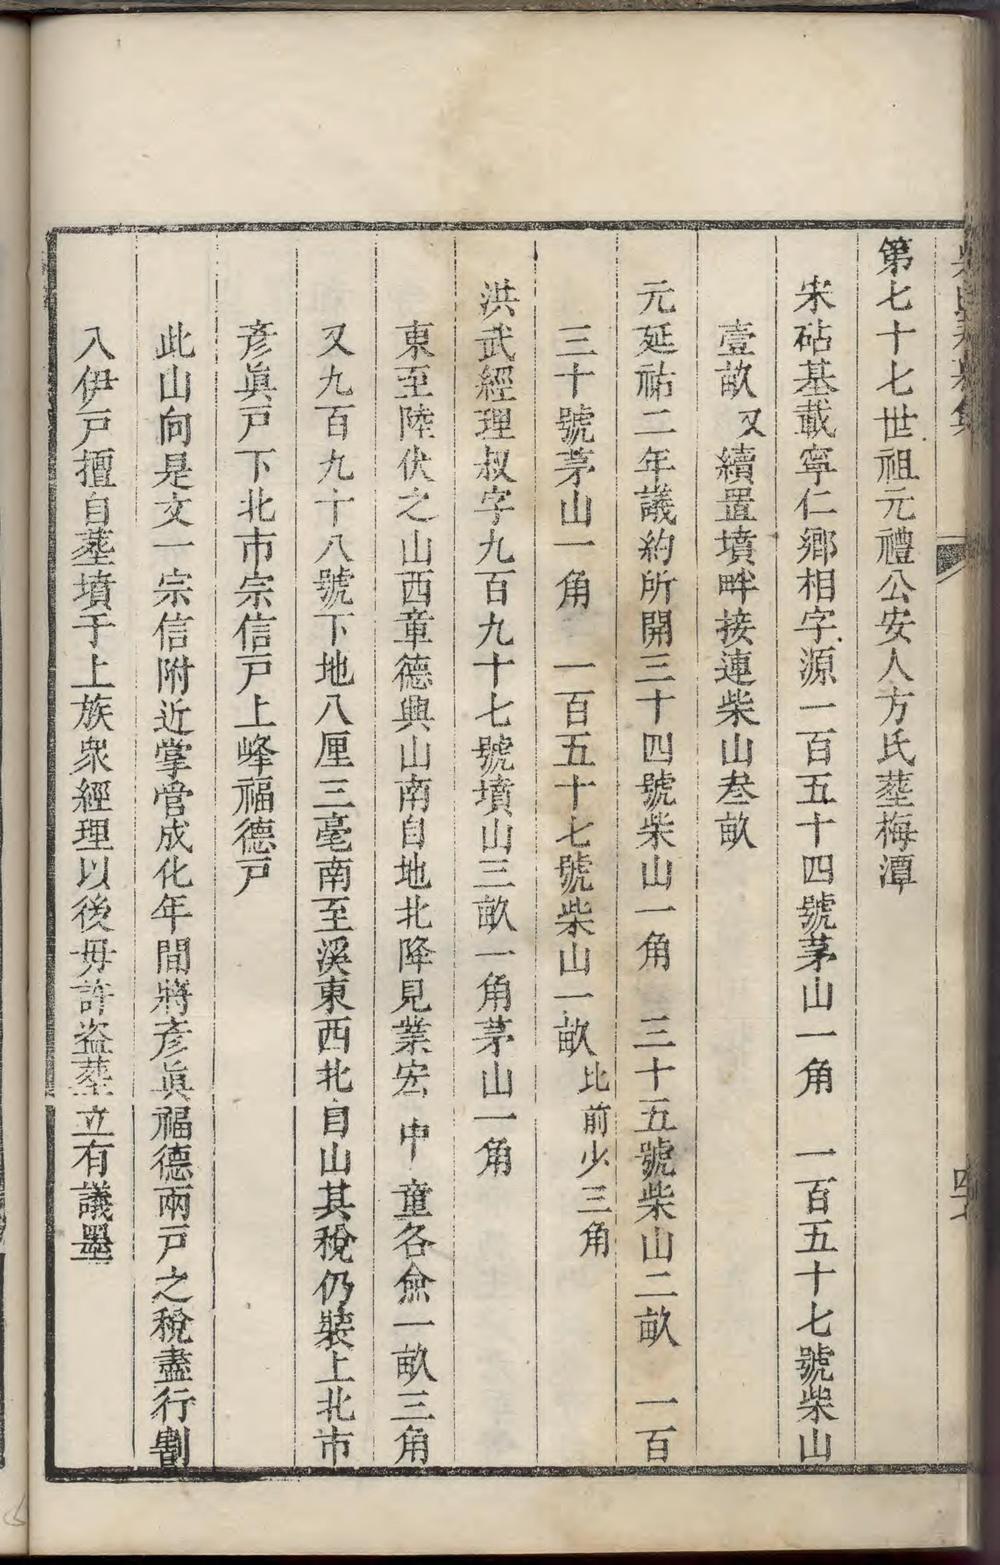 第七十七世祖元禮公安人方氏塟梅潭
宋砧基載寧仁鄉相字源一百五十四號茅山一角 一百五十七號柴山
壹畝 又續置墳畔接連柴山叁畝
元延祐二年議約所開三十四號柴山一角 三十五號柴山二畝 一百
三十號茅山一角 一百五十七號柴山一畝 比前少三角
洪武經理叔字九百九十七號墳山三畝一角茅山一角
東至陸伏之山西章德興山南自地北降見業宏中童各僉一畝三角
又九百九十八號下地八厘三毫南至溪東西北自山其稅仍裝上北市
彥眞戸下北市宗信戸上峰福德戸
此山向是文一宗信附近掌管成化年間將彥眞福德兩戸之稅盡行劃
入伊戸擅自塟墳于上族衆經理以後毋許盜塟立有議墨